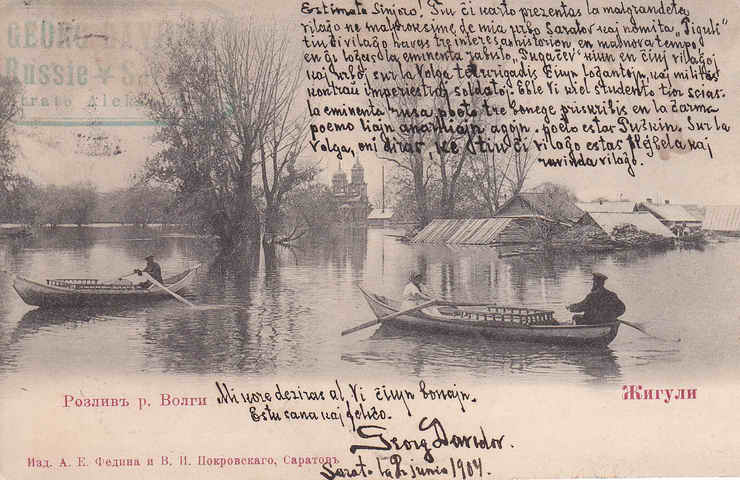 GEORG DAVIDOR
Russie Sara
strato Aleks
Estimata Sinjoro! Tiu ĉi karto prezentas la malgrandetan
vilaĝo ne malproksime de mia urbo Saratov kaj nomita "Ĵiguli"
tiu ĉi vilaĝo havas tre interesan historion, en malnova tempo
en ĝi loĝas la eminenta rabisto "Pugaĉev" kiun en ĉiuj vilaĝoj
kaj urboj, sur la Volga ĉiujn loĝantojn, kaj militas
kontraŭ imperiestraj soldatoj. Eble Vi kiel studento tion scias
la eminenta rusa poeto tre bonege priskribis en la ĉarma
poemo liajn agojn. poeto estas Puŝkin. Sur la
Volga, oni diras, ke tiu ĉi vilaĝo estas plej bela kaj
ravinda vilaĝo.
Розливъ р. Волги
Жигули
Mi kore deziras al Vi ĉiujn bonajn.
Estu sana kaj feliĉo.
Georg Davidor.
Изд. А. Е. Федина и В. И. Покровскаго, Саратовъ
Sarat. la 2 junio 1904.